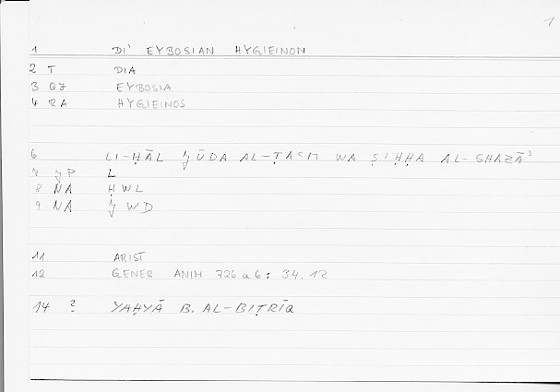 1
1 DI' EYBOSIAN HYGIEINON
2 T DIA
3 QJ EYBOSIA
4 RA HYGIEINOS
6 LI-ḤĀL ǧŪDA AL-ṬAʿM WA ṢIḤḤA AL-GHAẔĀʾ
7 ǧP L
8 NA ḤWL
9 NA ǧWD
11 ARIST
12 GENER ANIM 726 a 6 : 34.12
14 ? YAḤYĀ B. AL-BIṬRĪQ